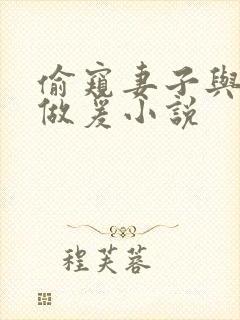 偷窺妻子與
做爰小説
程芙蓉